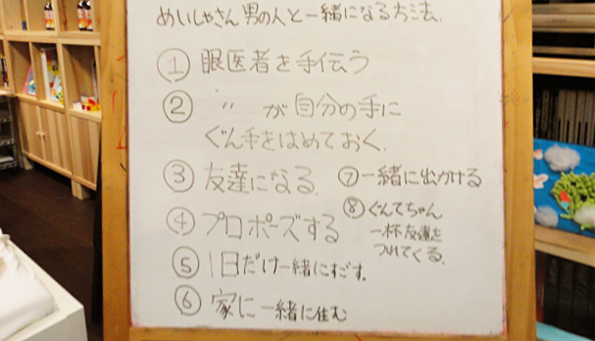 めいしゃさん男の人と一緒になる方法.
① 眼医者を手伝う
② 〃 が自分の手に
ぐん手をはめておく.
③ 友達になる.
④ プロポーズする
⑤ 1日だけ一緒にすごす.
⑥ 家に一緒に住む
⑦ 一緒に出かける
⑧ ぐんてちゃん
一杯友達を
つれてくる.